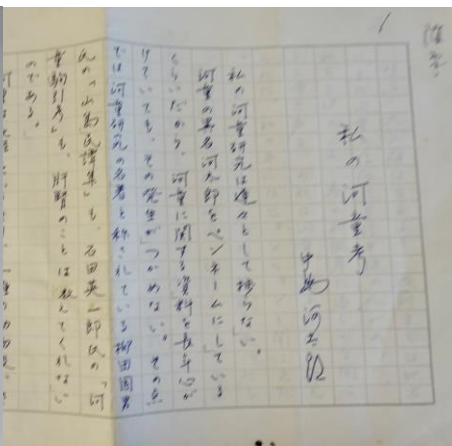 1
私の河童考
中島河太郎
私の河童研究は遅々として捗らない。
河童の異名河太郎をペンネームにしている
くらいだから、河童に関する資料を長年心が
けていても、その発生がつかめない。その点
では河童研究の名著と称されている柳田国男
氏の「山島民譚集」も、石田英一郎氏の「河
童駒引考」も、肝腎のことは教えてくれない
のである。